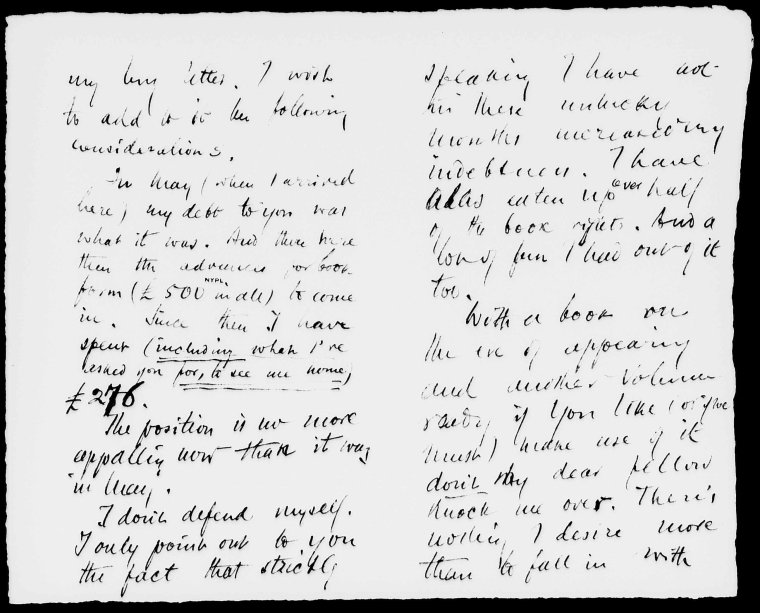 my long letter. I wish
to add to it the following
considerations.
In May (when I arrived
here) my debt to you was
what it was. And there were
then the advances for book
form (£500 in all) to come
NYPL
in. Since then I have
spent (including what I've
asked you for, to see me home)
£276.
The position is no more
appalling now than it was
in May.
I don't defend myself.
I only point out to you
the fact that strictly
speaking I have not
in these unlucky
months increased my
indebtness. I have
alas eaten up over half
of the book rights. And a
lot of fun I had out of it
too.
With a book on
the eve of appearing
and another volume
ready if you like (or if we
must) make use of it
don't my dear fellow
knock me over. There's
nothing I desire more
than to fall in with